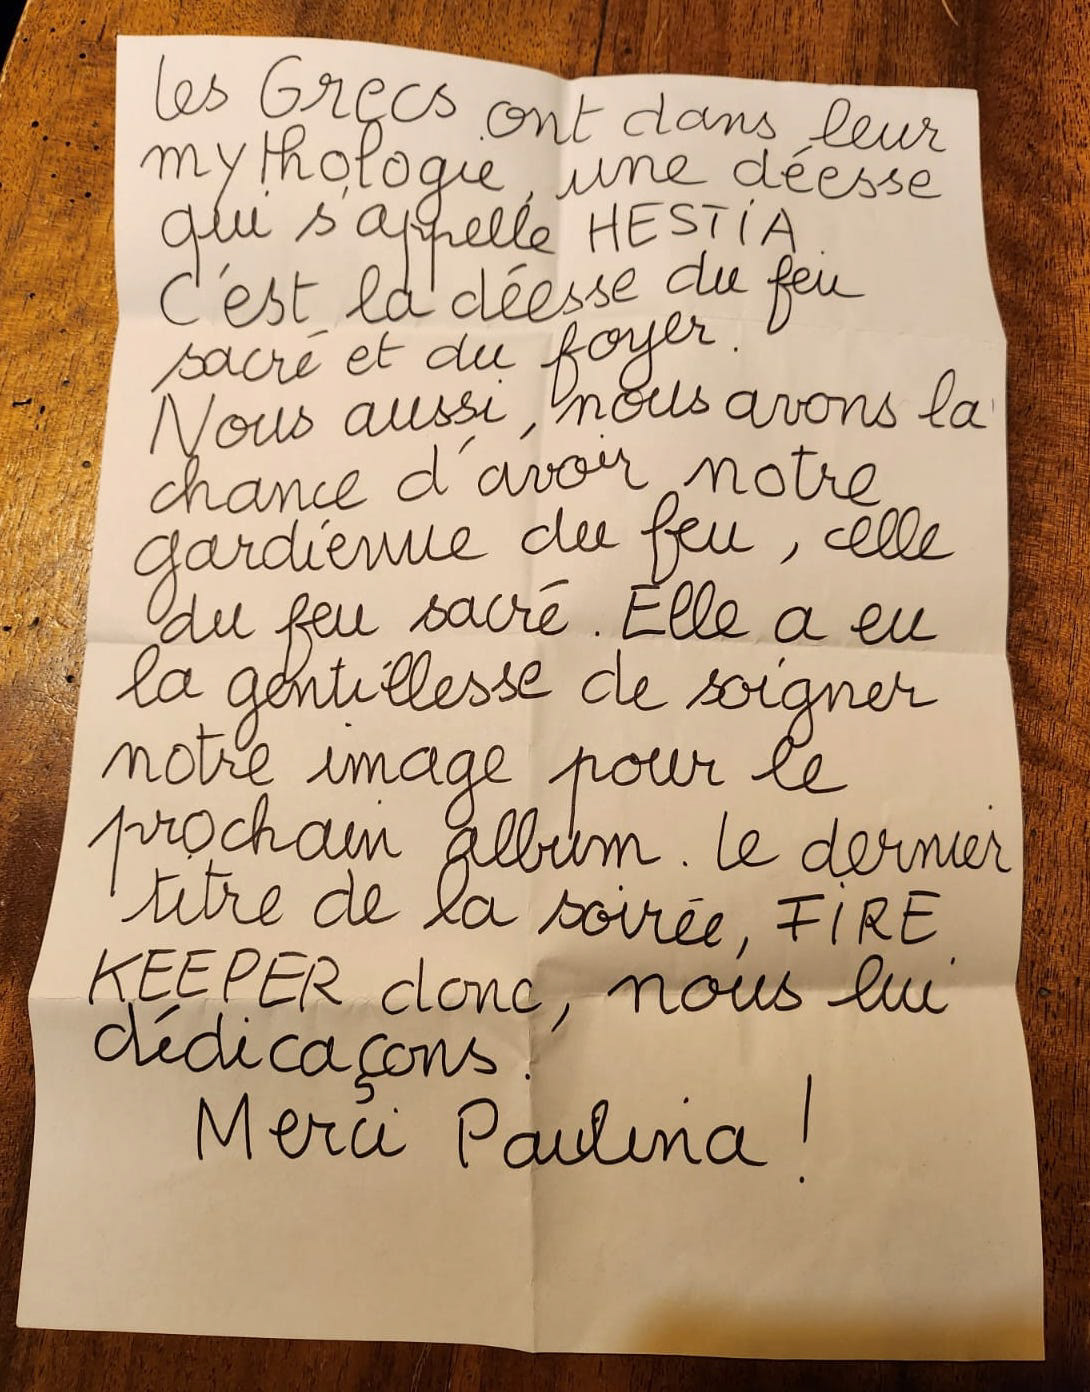 Les Grecs ont dans leur
mythologie, une déesse
qui s'appelle HESTIA.
C'est la déesse du feu
sacré et du foyer.
Nous aussi, nous avons la
chance d'avoir notre
gardienne du feu, celle
du feu sacré. Elle a eu
la gentillesse de soigner
notre image pour le
prochain album. Le dernier
titre de la soirée, FIRE
KEEPER donc, nous lui
dédicaçons.
Merci Paulina !